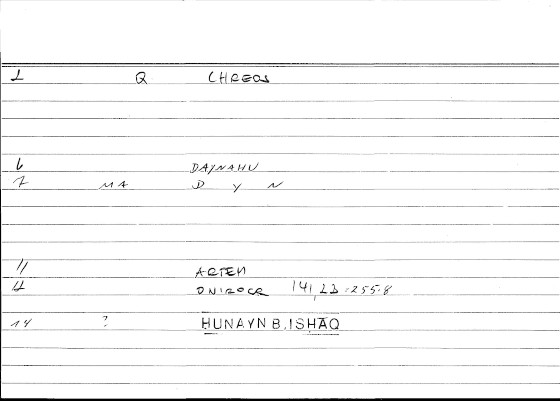 1 Q CHREOS
6 DAYNAHU
7 MA D Y N
11 ARTEM
12 ONIROCR 141,23=255.8
14 ? HUNAYN B. ISHAQ